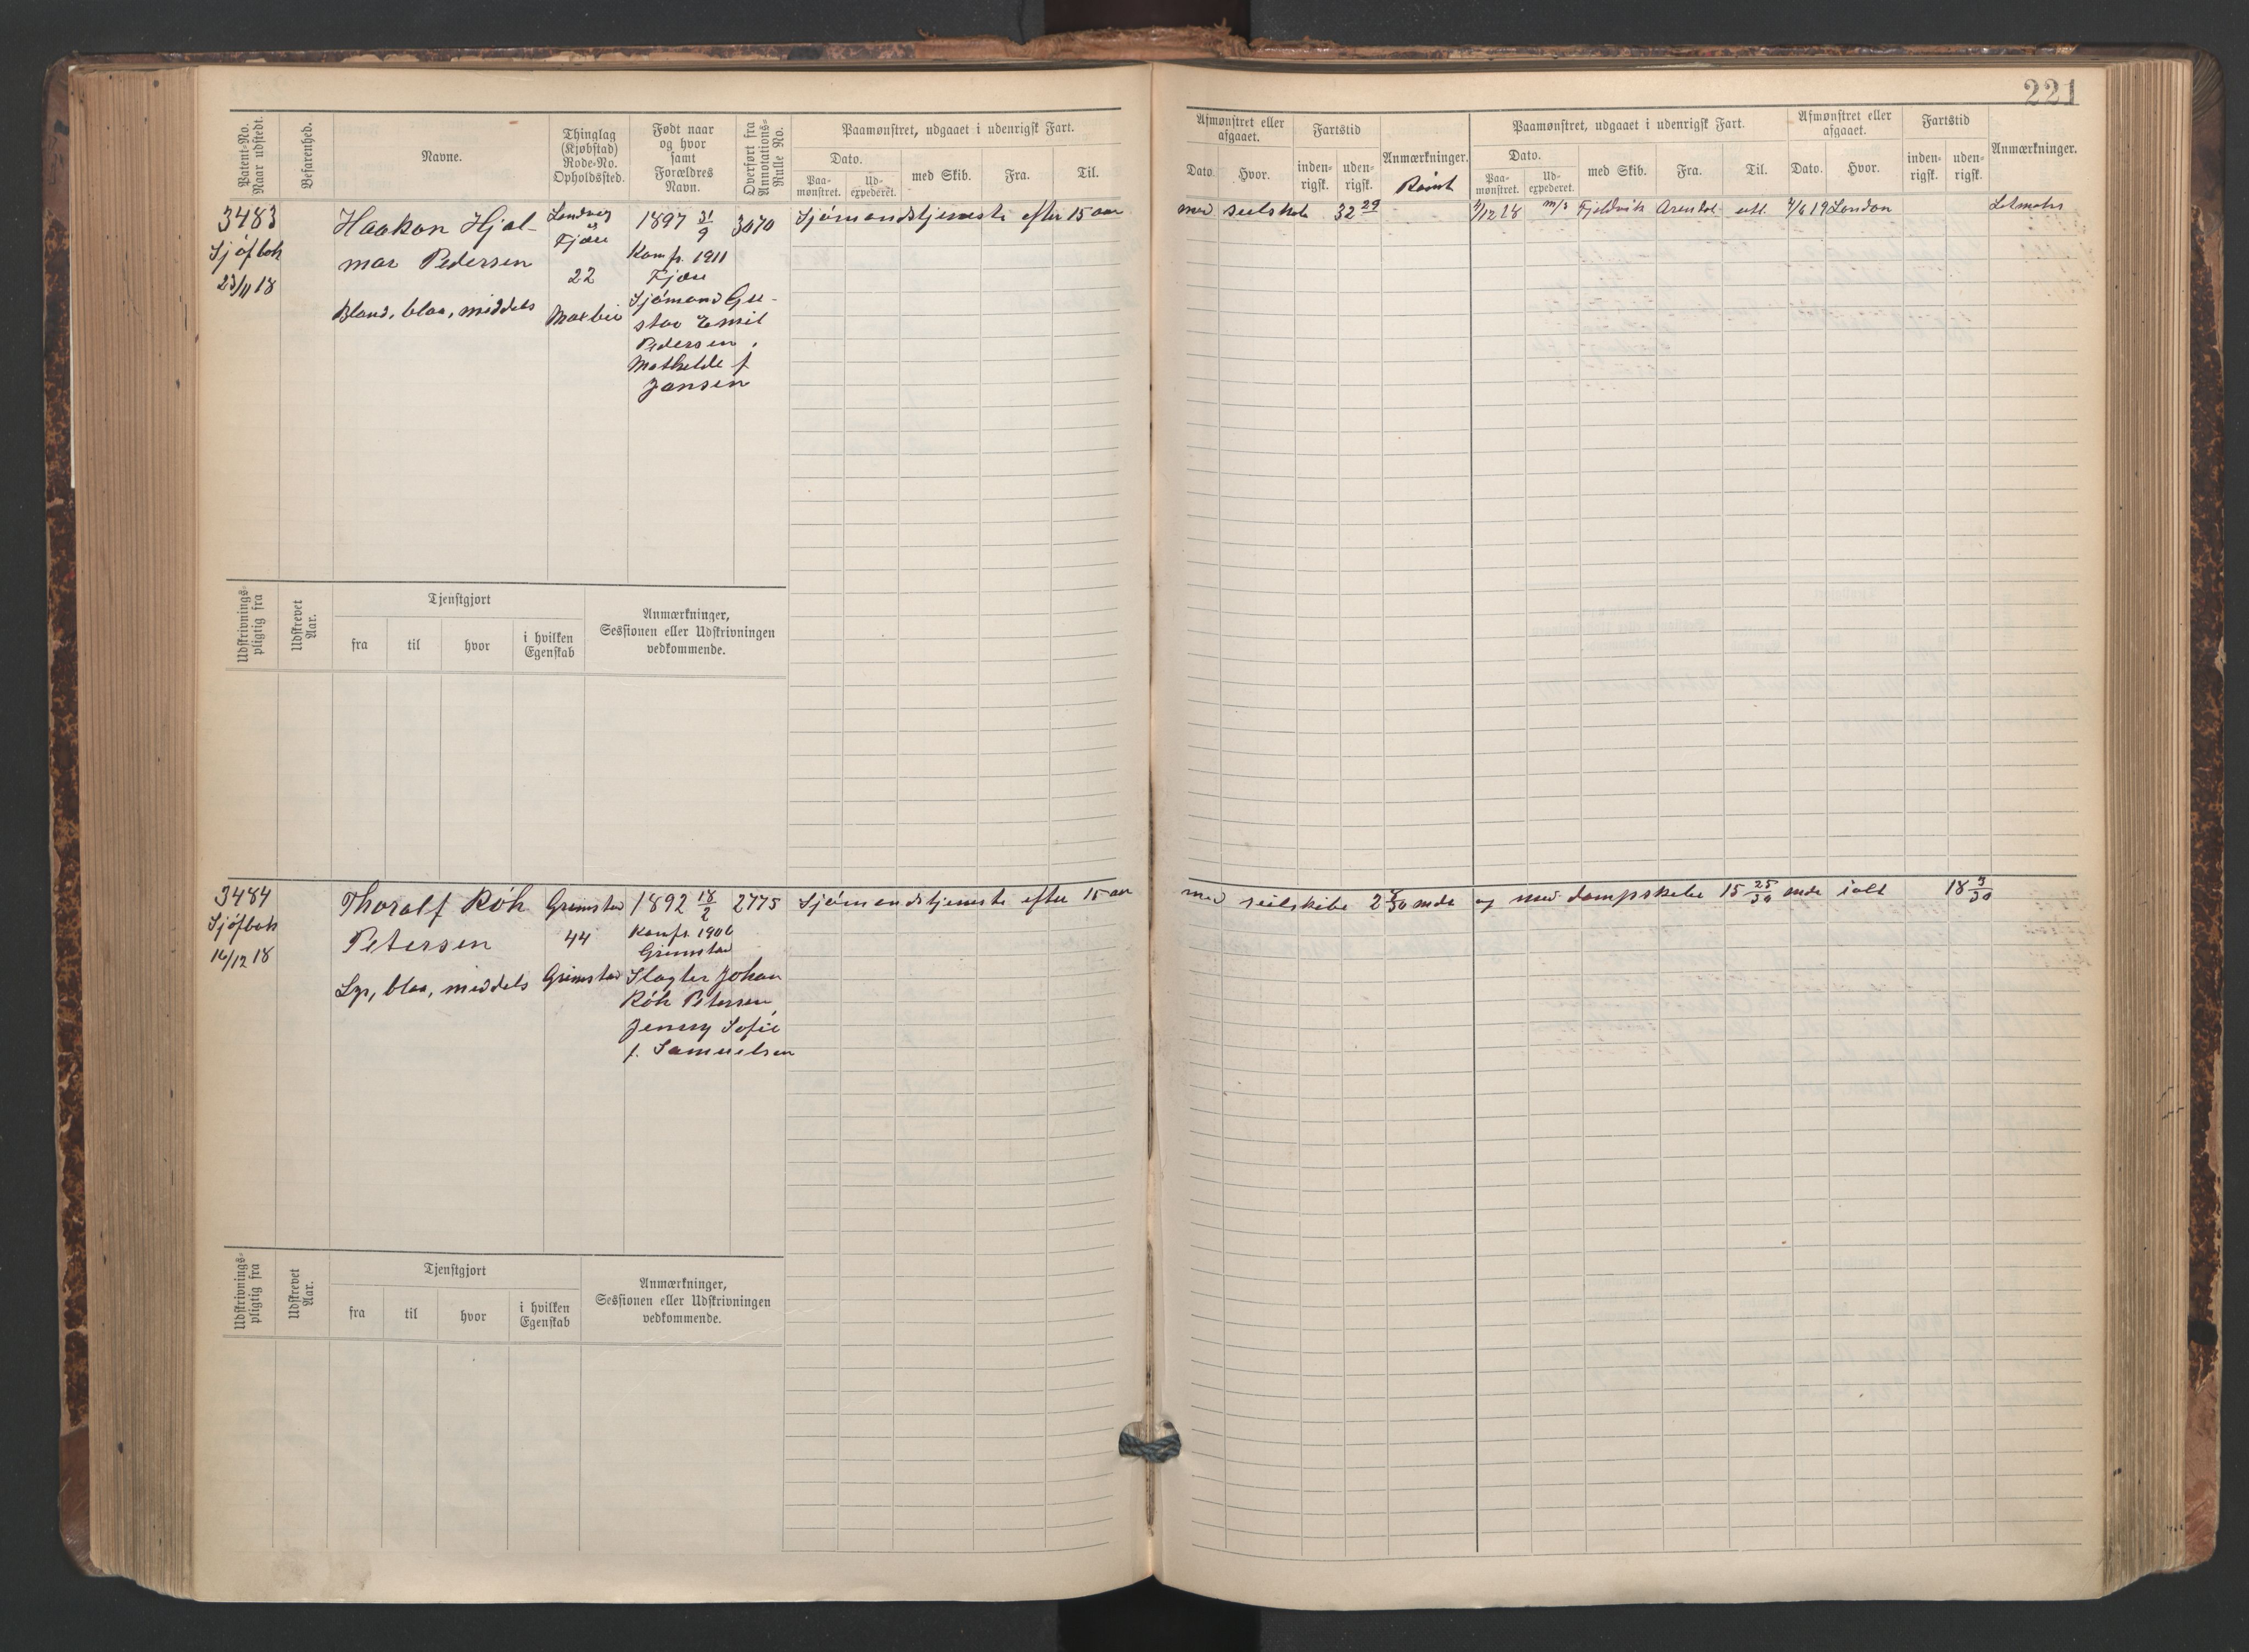 221
Patent-No. Naar udstedt.
Befarenhed.
Navne.
Thinglag (Kjøbstad) Rode-No. Opholdssted.
Født naar og hvor samt Forældres Navn.
Overført fra Annotations-Rulle No.
Paamønstret, udgaaet i udenrigsk Fart.
Dato.
Paa-mønstret.
Ud-expederet.
med Skib.
Fra.
Til.
Afmønstret eller afgaaet.
Dato.
Hvor.
Fartstid
inden-rigsk.
uden-rigsk.
Anmærkninger.
Paamønstret, udgaaet i udenrigsk Fart.
Dato.
Paa-mønstret.
Ud-expederet.
med Skib.
Fra.
Til.
Afmønstret eller afgaaet.
Dato.
Hvor.
Fartstid
inden-rigsk.
uden-rigsk.
Anmærkninger.
3483
Sjøfbok
23/11 18
Haakon Hjal-
mar Pedersen
Blond, blaa, middels
Landvig
Fjære
22
1897
9
Konf. 1911
Fjære
Sjömand Gu-
stav Emil
Pedersen,
Mathilde f
Jansen
3070
Sjömandstjeneste efter 15 aar
med seilskib 32 29
/12 18 m/s Fjeldvik Arendal utl. /6 19 London
Udskrivnings-pligtig fra
Udskrevet Aar.
Tjenstgjort
fra
til
hvor
i hvilken Egenskab
Anmærkninger,
Sessionen eller Udskrivningen
vedkommende.
3484
Sjöfbok
16/12 18
Thoralf Röh
Petersen
Lys, blaa, middels
Grimstad
44
Grimstad
1892 18/2
Konf. 1906
Grimstad
Slagter Johan
Röh Petersen,
Jenny Sofie
f. Samuelsen
2775
Sjömandstjeneste efter 15 aar
med seilskibe 2 /30 mdr og med dampskibe 15 25/30 mdr ialt 18 3/30
Udskrivnings-pligtig fra
Udskrevet Aar.
Tjenstgjort
fra
til
hvor
i hvilken Egenskab
Anmærkninger,
Sessionen eller Udskrivningen
vedkommende.